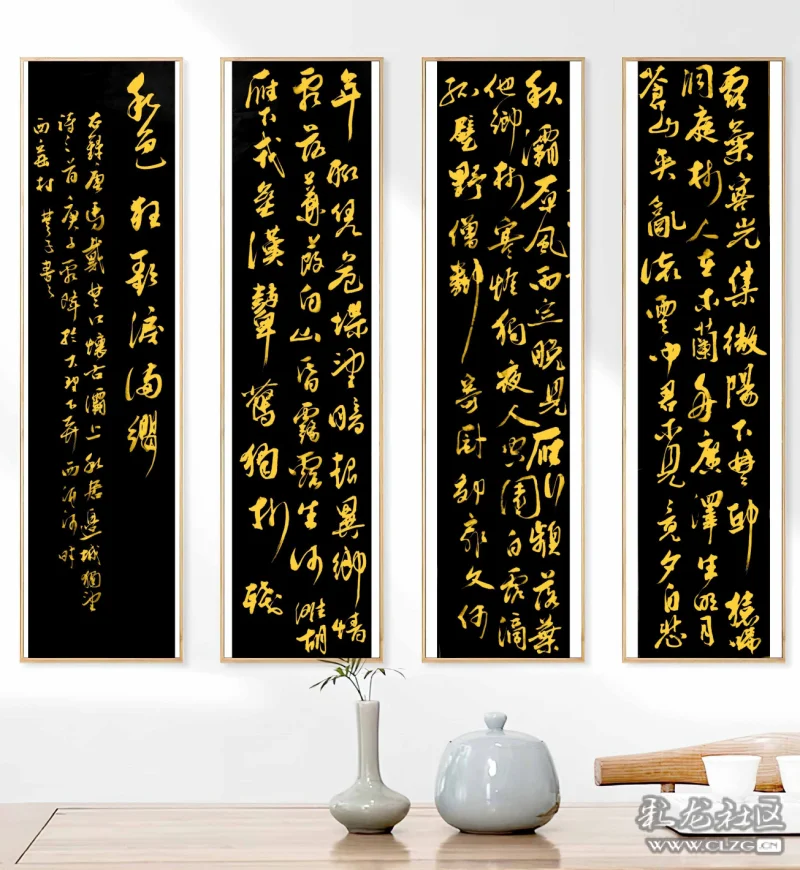 露氣寒光集微陽下楚邱猿啼
洞庭樹人在木蘭舟廣澤生明月
蒼山夾亂流雲中君不見竟夕自悲
秋灞原風雨定晚見雁行頻落葉
他鄉樹寒燈獨夜人空園白露滴
孤壁野僧鄰寄卧郊扉久何
年聊凭危堞望起異鄉情
霜落蒹葭白山昏霧露生河灘胡
雁下戎壘漢鼙驚獨樹殘
秋色狂歌淚滿纓
右録唐馬戴楚江懷古灞上秋居邊城獨望
詩三首庚子霜降於大理下西洱河畔
西村 楚子書
彩龙社区
WWW.CLZG.CN